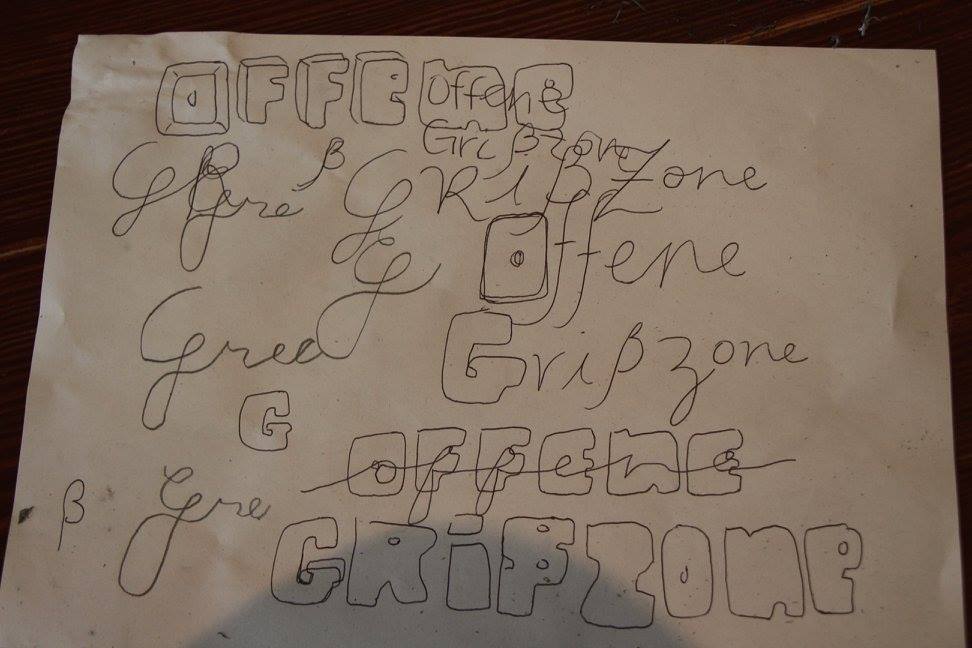 OFFENE Offene
Griβzone
G βGre β G GRIβZone
G Offene
Gree Griβzone
G
OFFENE
β Gre
GRiβZONE